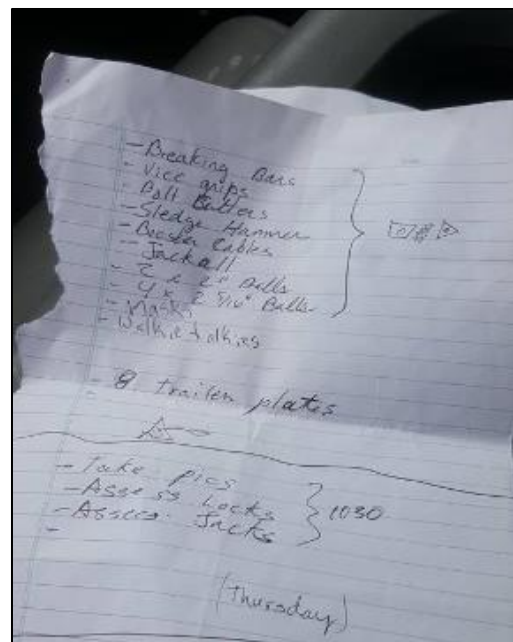 - Breaking Bars
- Vice grips
- Bolt Cutters
- Sledge Hammer
- Booster Cables
- Jackall
- 2 x 2" Balls
- 4 x 2 5/16" Balls
- Masks
- Walkie talkies
- 8 trailer plates
- Take pics
- Assess Locks
- Assess Jacks
1030
-
(Thursday)